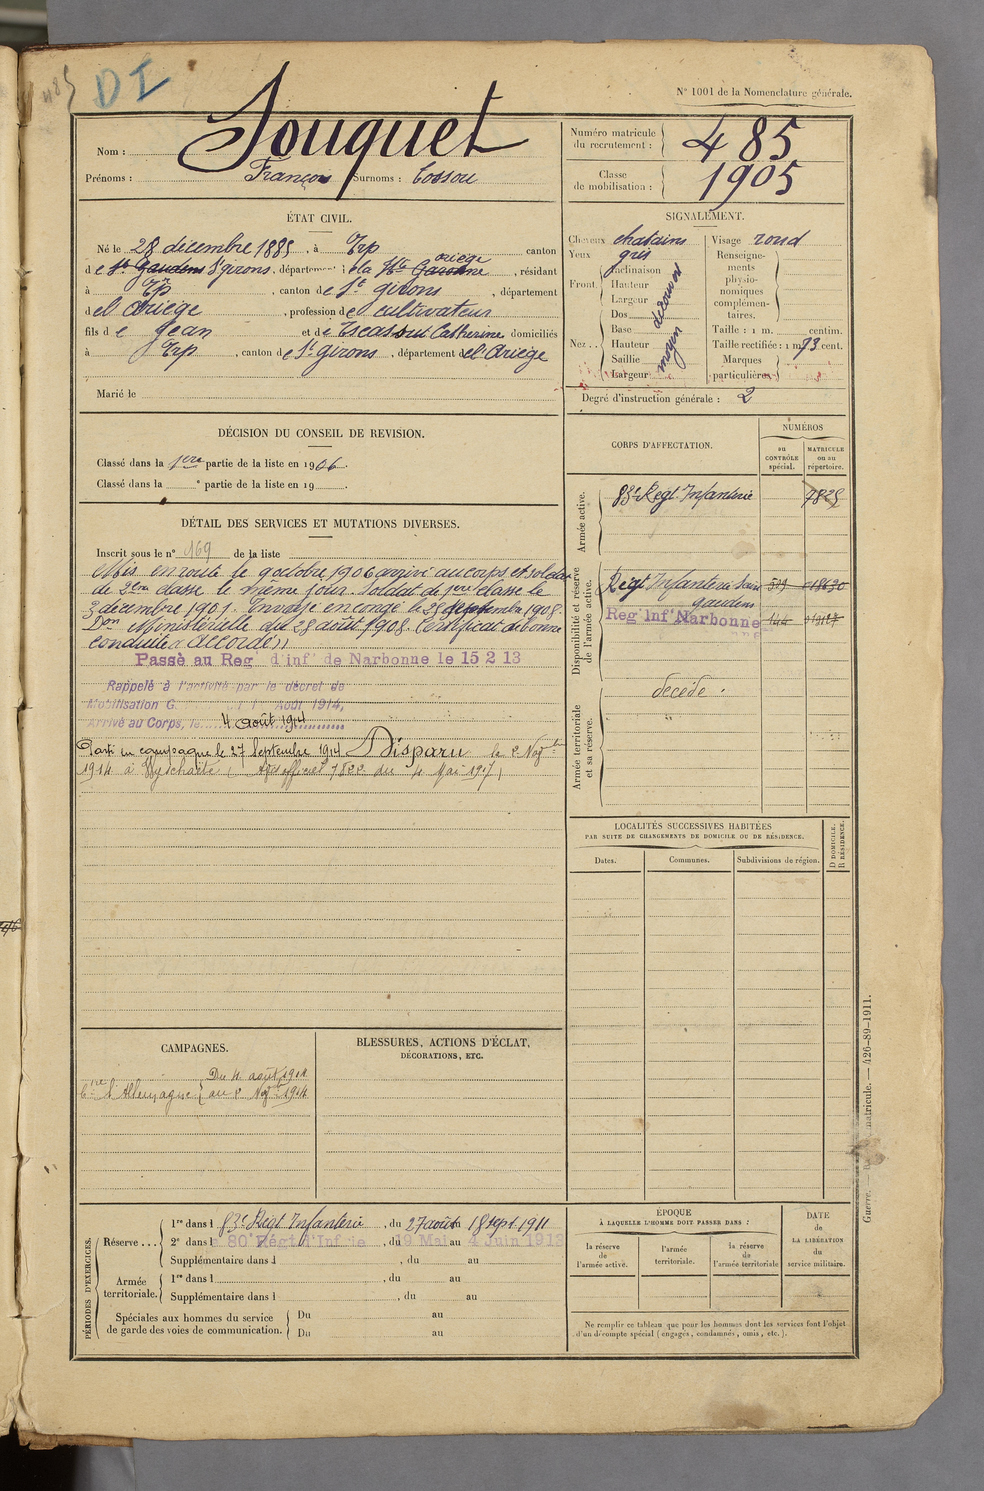 485
DI
N° 1001 de la Nomenclature générale.
Nom : Souquet
Prénoms : François Surnoms : Cossou
Numéro matricule du recrutement : 485
Classe de mobilisation : 1905
ÉTAT CIVIL.
Né le 28 décembre 1885, à Erp canton
de St Gaudens St girons, département : de la Hte Garonne ariège, résidant
à Erp, canton de St girons, département
del Ariège, profession de cultivateur
fils de Jean et de Escassut Catherine domiciliés
à Erp, canton de St girons, département del Ariège
Marié le
SIGNALEMENT.
Cheveux chatains
Yeux gris
Front.
Inclinaison
Hauteur
Largeur
Nez . .
Dos
Base
Hauteur
Saillie
Largeur
découvert
moyen
Visage rond
Renseignements physionomiques complémentaires.
Taille : 1 m. centim.
Taille rectifiée : 1 m. 73 cent.
Marques particulières
Degré d'instruction générale : 2
DÉCISION DU CONSEIL DE REVISION.
Classé dans la 1ère partie de la liste en 1906.
Classé dans la ° partie de la liste en 19
DÉTAIL DES SERVICES ET MUTATIONS DIVERSES.
Inscrit sous le n° 169 de la liste
Mis en route le 9 octobre 1906 arrivé au corps et soldat
de 2ème classe le même jour. Soldat de 1ère classe le
3 décembre 1907. Envoyé en congé le 25 septembre 1908.
Don Ministérielle du 28 août 1908. Certificat de bonne
conduite "Accordé"
Passé au Reg d'inf de Narbonne le 15 2 13
Rappelé à l'activité par le décret de
Mobilisation G 1 Août 1914,
Arrivé au Corps, le 4 août 1914
Parti en campagne le 27 Septembre 1914 Disparu le 2 Nov
1914 à Wyschaëte, Avis officiel 7822 du 4 Mai 1917,
CORPS D'AFFECTATION.
NUMÉROS
au CONTRÔLE spécial.
MATRICULE ou au répertoire.
Armée active.
83e Regt Infanterie 7825
Disponibilité et réserve de l'armée active.
Regt Infanterie Saint gaudens
Reg Inf Narbonne
Armée territoriale et sa réserve.
décédé.
LOCALITÉS SUCCESSIVES HABITÉES
PAR SUITE DE CHANGEMENTS DE DOMICILE OU DE RÉSIDENCE.
Dates.
Communes.
Subdivisions de région.
D DOMICILE.
R RÉSIDENCE.
CAMPAGNES.
Ctre l'Allemagne { Du 4 août 1914
au 2 Nov 1914
BLESSURES, ACTIONS D'ÉCLAT,
DÉCORATIONS, ETC.
PÉRIODES D'EXERCICES.
Réserve . . .
1re dans l 83e Régt Infanterie, du 27 août au 18 sept 1911
2e dans l e 80e Régt d'Inf ie, du 19 Mai au 4 Juin 1913
Supplémentaire dans l , du au
Armée territoriale.
1re dans l , du au
Supplémentaire dans l , du au
Spéciales aux hommes du service de garde des voies de communication.
Du au
Du au
ÉPOQUE
À LAQUELLE L'HOMME DOIT PASSER DANS :
la réserve de l'armée active.
l'armée territoriale.
la réserve de l'armée territoriale
DATE de LA LIBÉRATION du service militaire.
Ne remplir ce tableau que pour les hommes dont les services font l'objet
d'un décompte spécial (engagés, condamnés, omis, etc.).
matricule. — 426-89-1911.